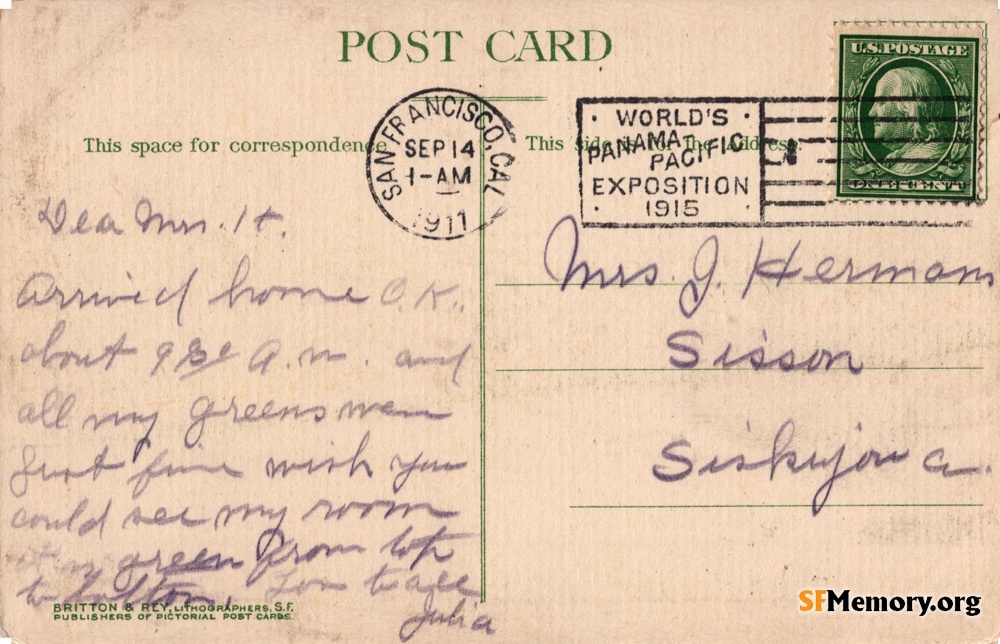 POST CARD
This space for correspondence
This side is for the Address.
SAN FRANCISCO, CAL.
SEP 14
1-AM
1911
WORLD'S
PANAMA-PACIFIC
EXPOSITION
1915
U.S. POSTAGE
ONE CENT
Dear Mrs. H.
Arrived home O.K.
about 9 30 A.M. and
all my greens were
just fine wish you
could see my room
it is green from top
to bottom. Love to all
Julia
Mrs. J. Hermann
Sisson
Siskiyou
BRITTON & REY, LITHOGRAPHERS, S.F.
PUBLISHERS OF PICTORIAL POST CARDS.
SFMemory.org